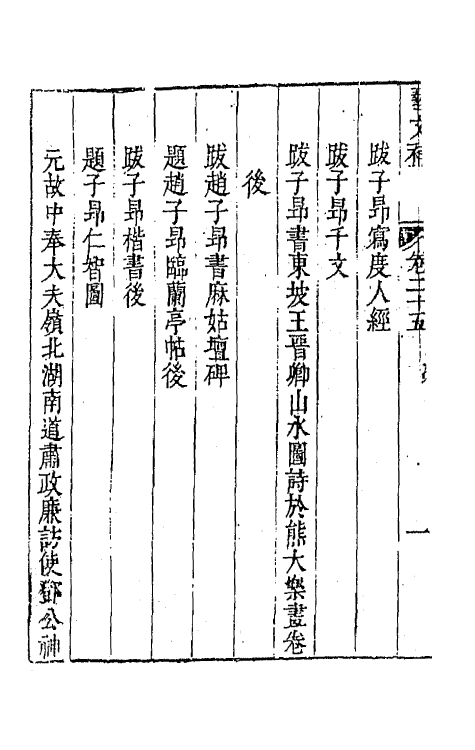 卷二十五
一
跋子昂寫度人經
跋子昂千文
跋子昂書東坡王晉卿山水圖詩於熊大樂畫卷
後
跋趙子昂書麻姑壇碑
題趙子昂臨蘭亭帖後
跋子昂楷書後
題子昂仁智圖
元故中奉大夫嶺北湖南道肅政廉訪使鄧公神